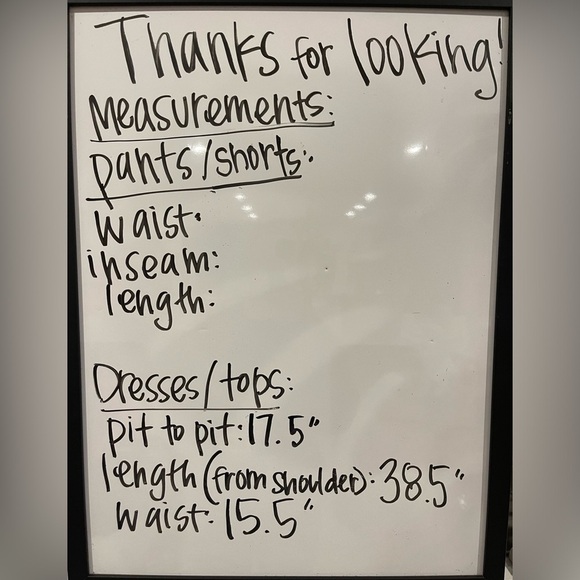 Thanks for looking!
Measurements:
pants/shorts:
waist:
inseam:
length:
Dresses/tops:
pit to pit: 17.5"
length (from shoulder): 38.5"
waist: 15.5"